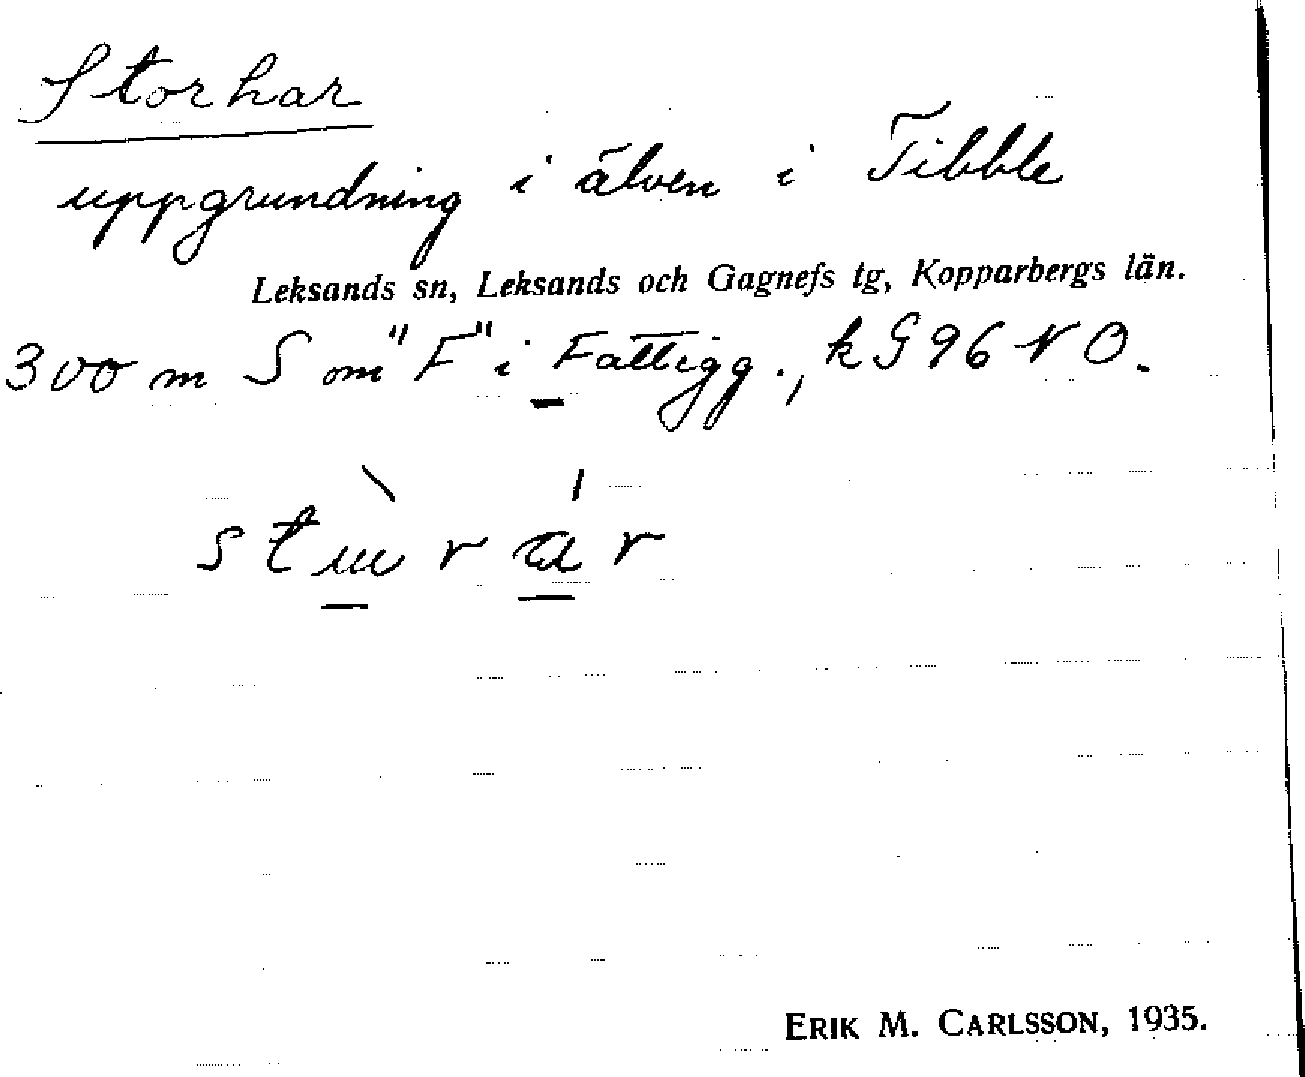 Storhar
uppgrundning i älven i Tibble
Leksands sn, Leksands och Gagnefs tg, Kopparbergs län.
300 m S om "F" i Fattigg., k G 96 N O.
ERIK M. CARLSSON, 1935.